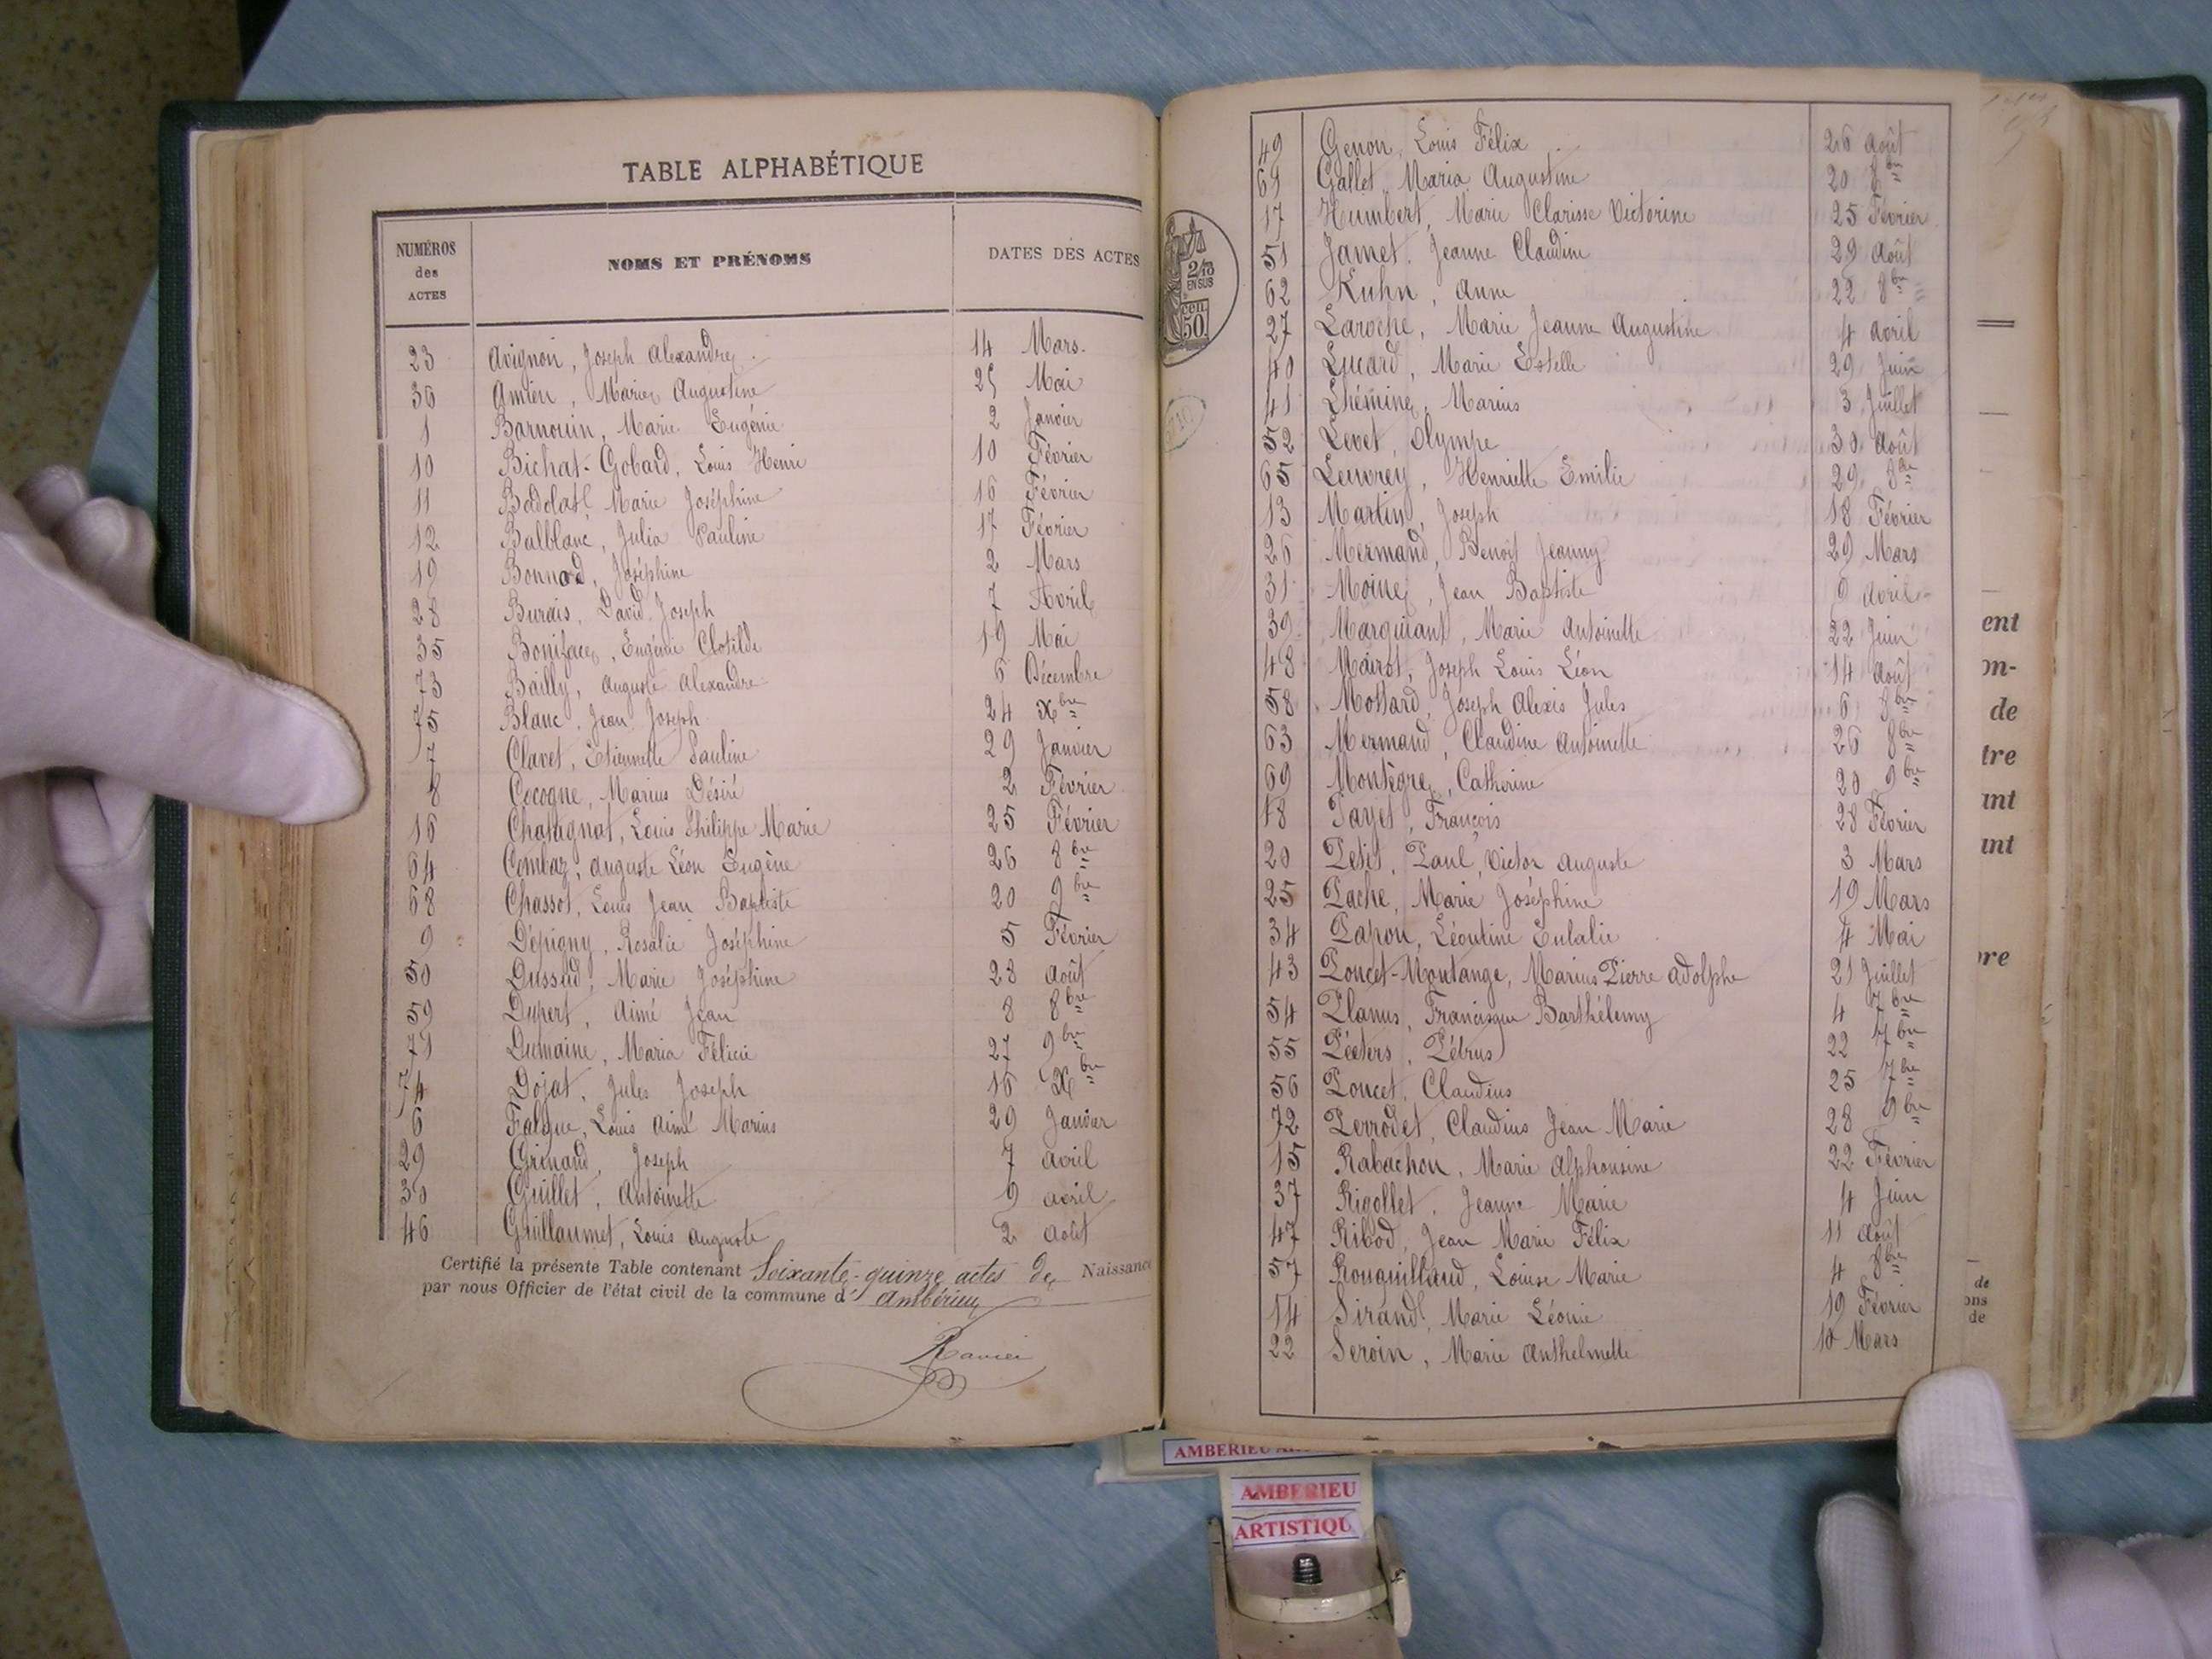 TABLE ALPHABÉTIQUE
NUMÉROS des ACTES NOMS ET PRÉNOMS DATES DES ACTES
23 Avignon, Joseph Alexandre 14 Mars
36 Amien, Marie Augustine 25 Mai
1 Barnouin, Marie Eugénie 2 Janvier
10 Bichat-Gobard, Louis Henri 10 Février
11 Badolat Marie Joséphine 16 Février
12 Balblanc, Julia Pauline 17 Février
19 Bonnad, Joséphine 2 Mars
28 Burais, David Joseph 7 Avril
35 Boniface, Eugénie Clotilde 19 Mai
73 Bailly, Auguste Alexandre 6 Décembre
75 Blanc, Jean Joseph 24 Xbre
7 Clavet, Etiennette Pauline 29 Janvier
8 Cocogne, Marius Désiré 2 Février
16 Chapignat, Louis Philippe Marie 25 Février
64 Combaz, Auguste Léon Eugène 26 8bre
68 Chassot, Louis Jean Baptiste 20 9bre
9 Dépigny, Rosalie Joséphine 5 Février
50 Dussud, Marie Joséphine 28 Août
59 Dupert, Aimé Jean 8 8bre
71 Dumaine, Maria Félicie 27 9bre
74 Dojat, Jules Joseph 16 Xbre
6 Falque, Louis Aimé Marius 29 Janvier
29 Grinand, Joseph 7 Avril
30 Guillet, Antoinette 9 Avril
46 Guillaumet, Louis Auguste 2 Août
Certifié la présente Table contenant Soixante-quinze actes de Naissance
par nous Officier de l'état civil de la commune d' Ambérieu
2/10
EN SUS
50 cen
49 Genon, Louis Félix 26 Août
61 Gallet, Maria Augustine 20 8bre
17 Humbert, Marie Clarisse Victorine 25 Février
51 Jamet, Jeanne Claudine 29 Août
62 Kuhn, Anne 22 8bre
27 Laroche, Marie Jeanne Augustine 4 Avril
40 Lucard, Marie Estelle 29 Juin
41 Lhémine, Marius 3 Juillet
52 Levet, Olympe 30 Août
65 Leuvrey, Henriette Emilie 29 8bre
13 Martin, Joseph 18 Février
26 Mermand, Benoit Jeanny 29 Mars
31 Moine, Jean Baptiste 9 Avril
39 Marquiant, Marie Antoinette 22 Juin
48 Mairot, Joseph Louis Léon 14 Août
58 Mottard, Joseph Alexis Jules 6 8bre
63 Mermand, Claudine Antoinette 26 8bre
69 Montègre, Catherine 20 9bre
18 Payet, François 28 Février
20 Petit, Paul, Victor Auguste 3 Mars
25 Pache, Marie Joséphine 19 Mars
34 Papon, Léontine Eulalie 4 Mai
43 Poncet-Montange, Marius Pierre Adolphe 21 Juillet
54 Planus, Francisque Barthélemy 4 7bre
55 Péeters, Pétrus 22 7bre
56 Poncet, Claudius 25 7bre
72 Perrodet, Claudius Jean Marie 28 9bre
15 Rabachon, Marie Alphonsine 22 Février
37 Rigollet, Jeanne Marie 4 Juin
47 Ribod, Jean Marie Félix 11 Août
57 Rouquilland, Louise Marie 4 8bre
14 Sirand, Marie Léonie 19 Février
22 Seroin, Marie Anthelmette 10 Mars
ent
on-
de
tre
ant
ant
re
de
ons
de
AMBERIEU
AMBERIEU
ARTISTIQU